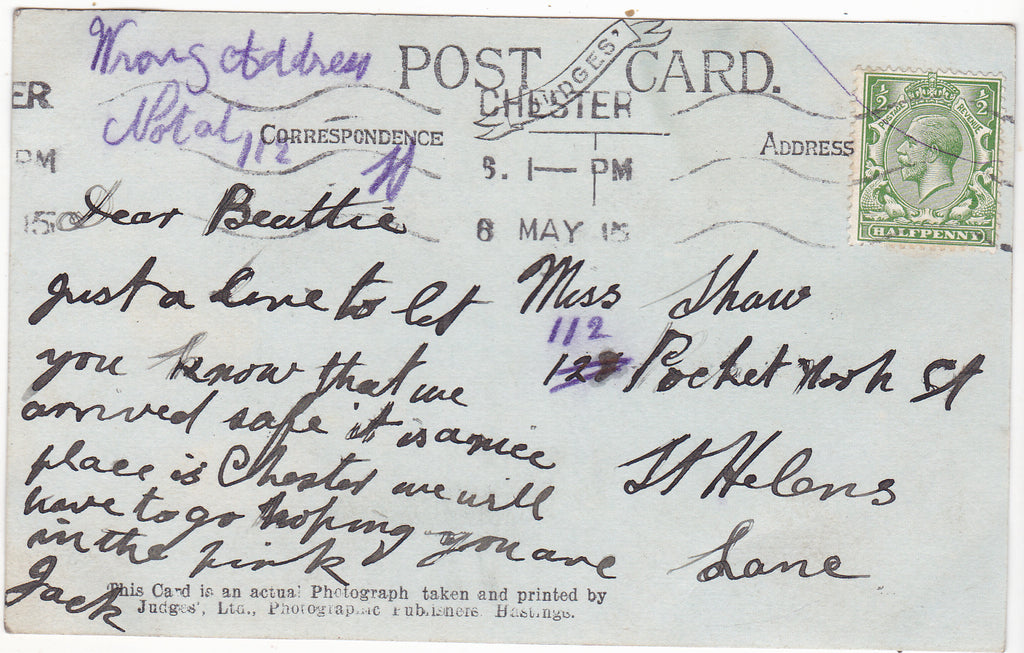 Wrong Address
Not at 112
POST CARD.
JUDGES'
CHESTER
ER
CORRESPONDENCE
ADDRESS
PM
1— PM
15
6 MAY 15
½ ½
POSTAGE REVENUE
HALFPENNY
Dear Beattie
Just a line to let
you know that we
arrived safe it is a nice
place is Chester we will
have to go hoping you are
in the pink
Jack
Miss Shaw
112
Pocket Nook St
St Helens
Lanc
This Card is an actual Photograph taken and printed by
Judges', Ltd., Photographic Publishers Hastings.